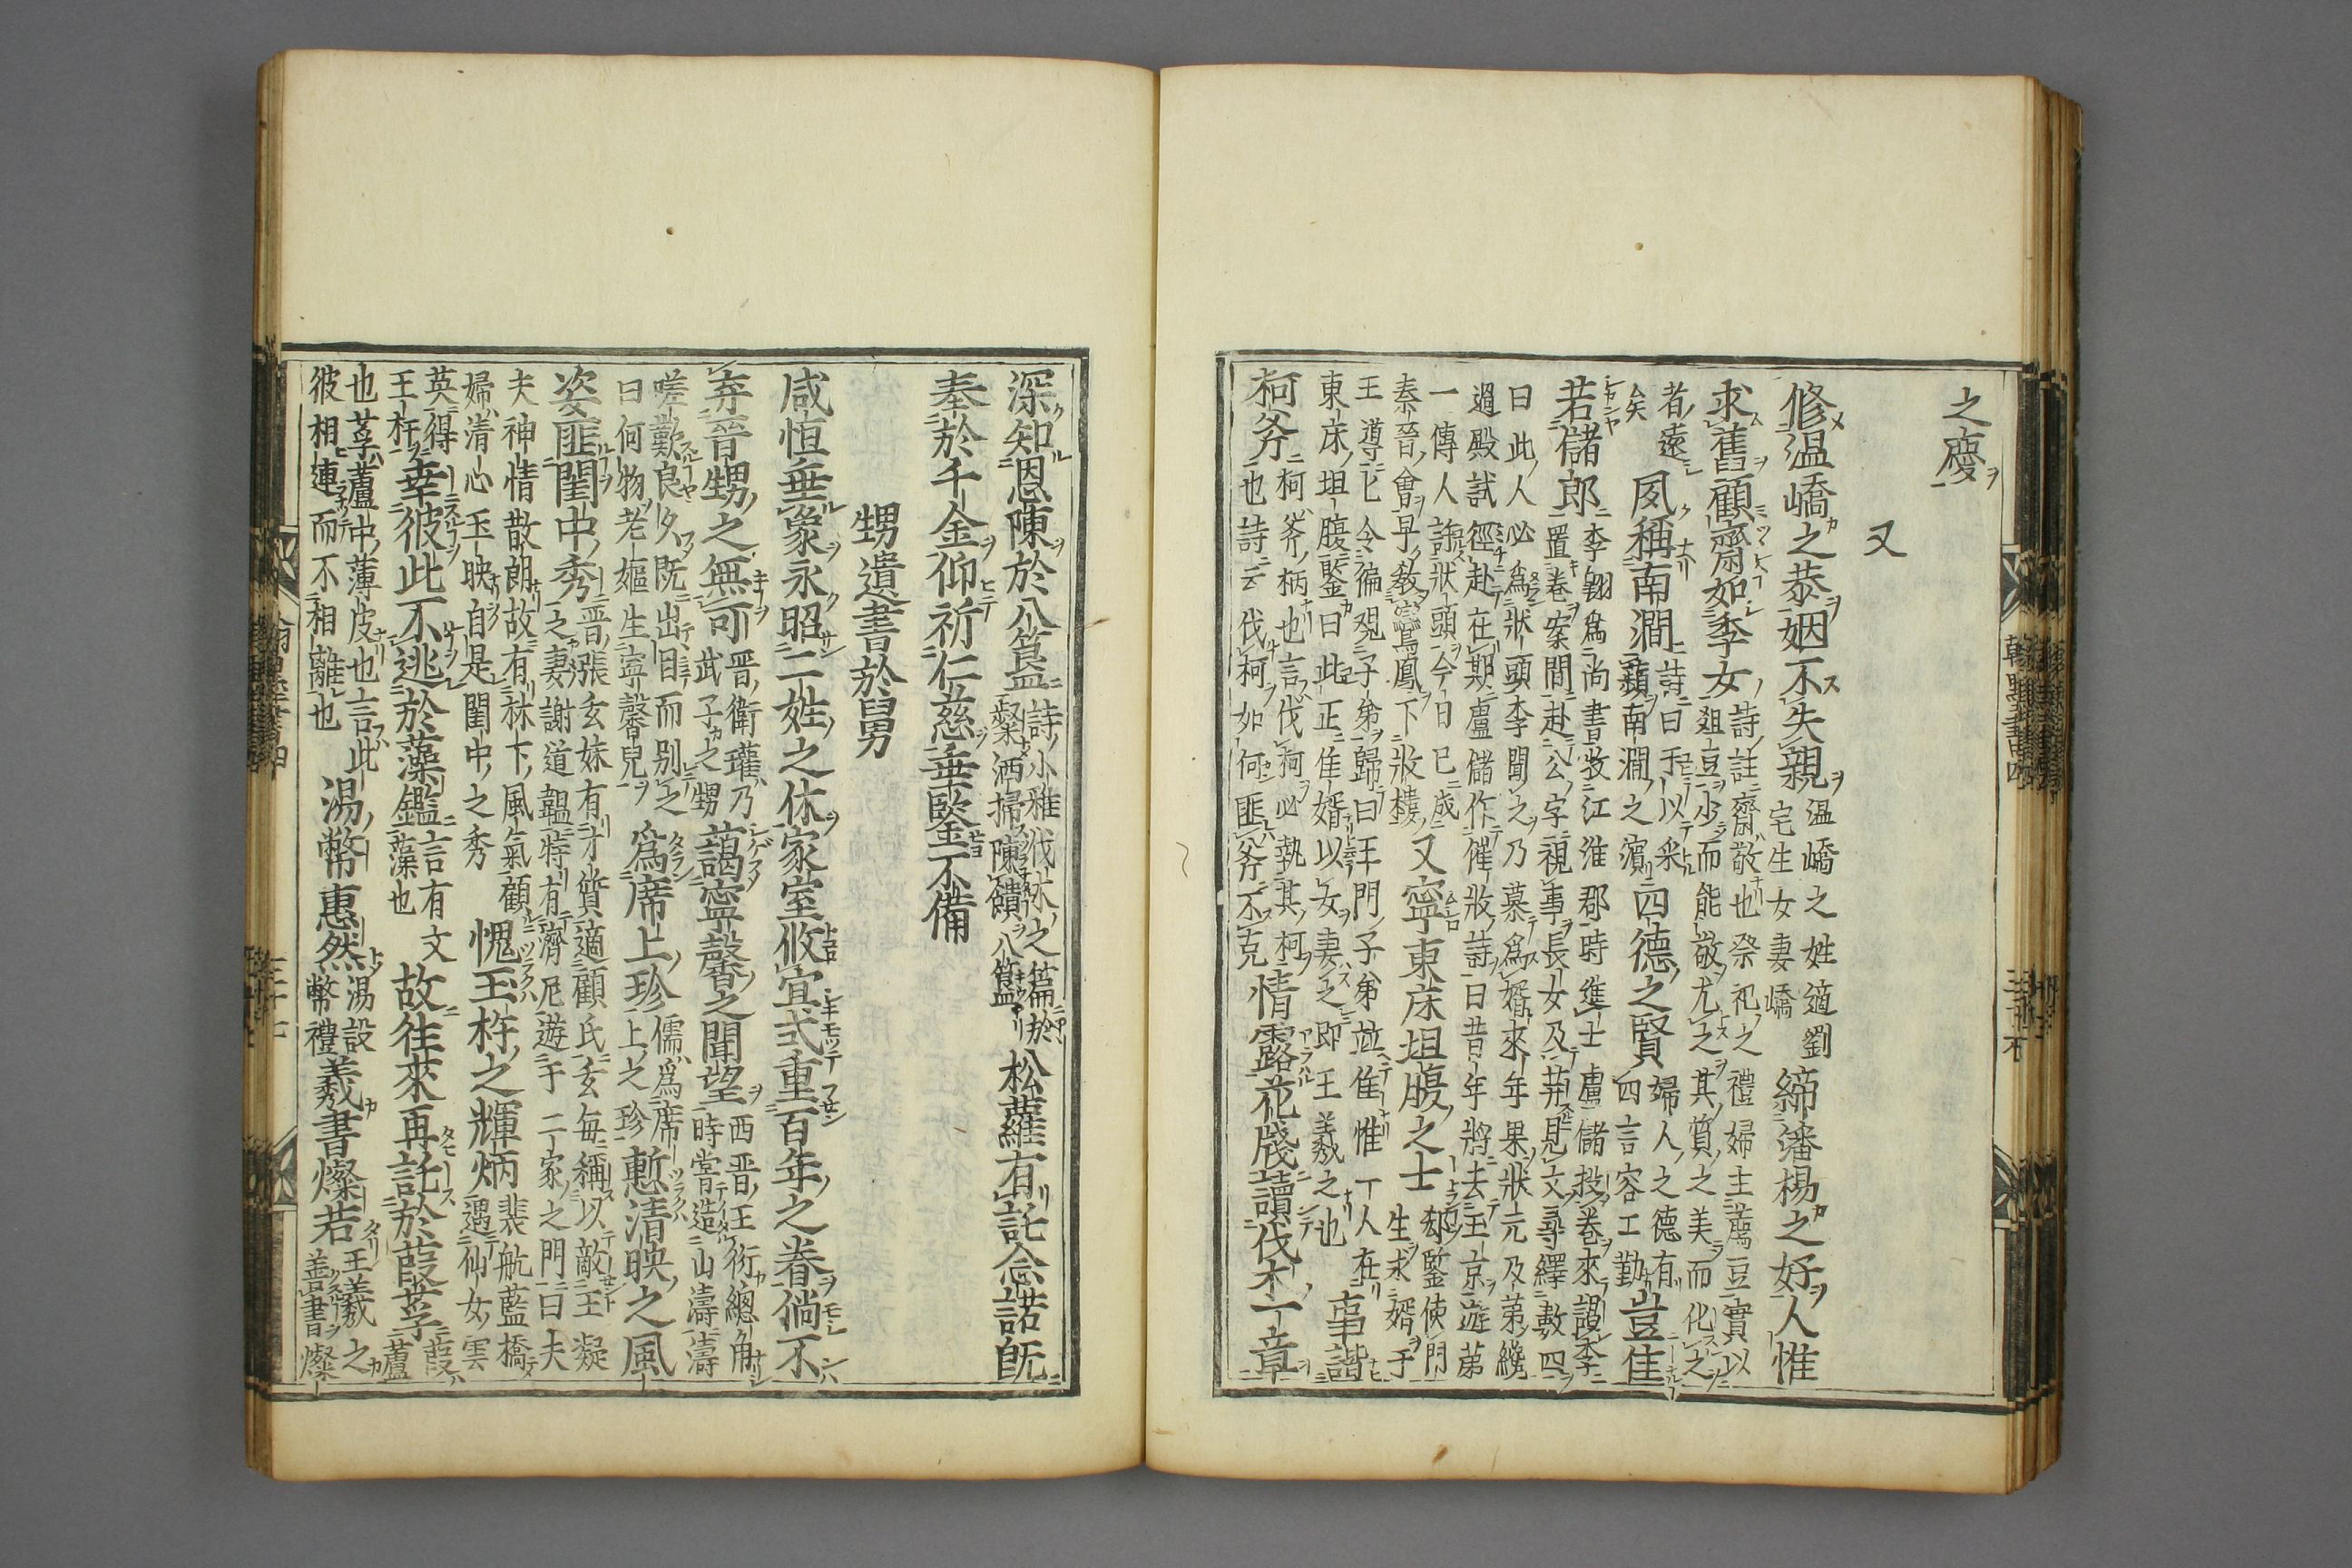 之慶
又
修温嶠之恭姻不失親温嶠之姓適劉宅生女妻嶠締潘楊之好人惟
求舊顧齋如季女詩註齋敬也祭祀之禮婦主薦豆實以俎豆少而能敬尤之其質之美而化之
者遠矣夙稱南澗詩曰于以采蘋南澗之濱四德之賢婦人之德有四言容工勤豈隹
若儲郎李翺爲尚書牧江淮郡時進士盧儲投卷來謁李置卷案間赴公字視事長女及荆見文尋繹數四
曰此人必爲狀頭李聞之乃慕爲婿來年果狀元及第纔
過殿試徑赴在期盧儲作催妝詩曰昔年將去玉京遊第
一傳人許狀頭今日已成
秦晉會早教鸞鳳下妝樓又寧東床坦腹之士郄鑒使門生求婿于
王導令徧觀子弟歸曰王門子弟竝佳惟一人在
東床坦腹鑒曰此正佳婿以女妻之即王羲之也事諧
柯斧柯斧柄也言伐柯必執其柯也詩云伐柯如何匪斧不克情露花牋讀伐木一章
深知恩陳於八簋詩小雅伐木之篇於粲洒掃陳饋八簋松蘿有託念諾旣
奉於千金仰祈仁慈垂鑒不備
甥遺書於舅
咸恒垂象永昭二姓之休家室攸宜式重百年之眷倘不
弃晉甥之無可晋衛瓘乃武子之甥藹寧馨之聞望西晋王衍總角時嘗造山濤濤
嗟歎良久既出目而别之曰何物老嫗生寧馨兒爲席上珍儒爲席上之珍慙清映之風
姿匪閨中秀晋張玄妹有才質適顧氏玄每稱以敵王凝之妻謝道韞時有濟尼遊于二家之門曰夫
夫神情散朗故有林下風氣顧
婦清心玉映自是閨中之秀愧玉杵之輝炳裴航藍橋遇仙女雲
英得玉杵幸彼此不逃於藻鑑言有文藻也故往來再託於葭莩葭蘆
也莩蘆中薄皮也言此
彼相連而不相離也湯幣惠然湯設幣禮羲書燦若王羲之善書燦